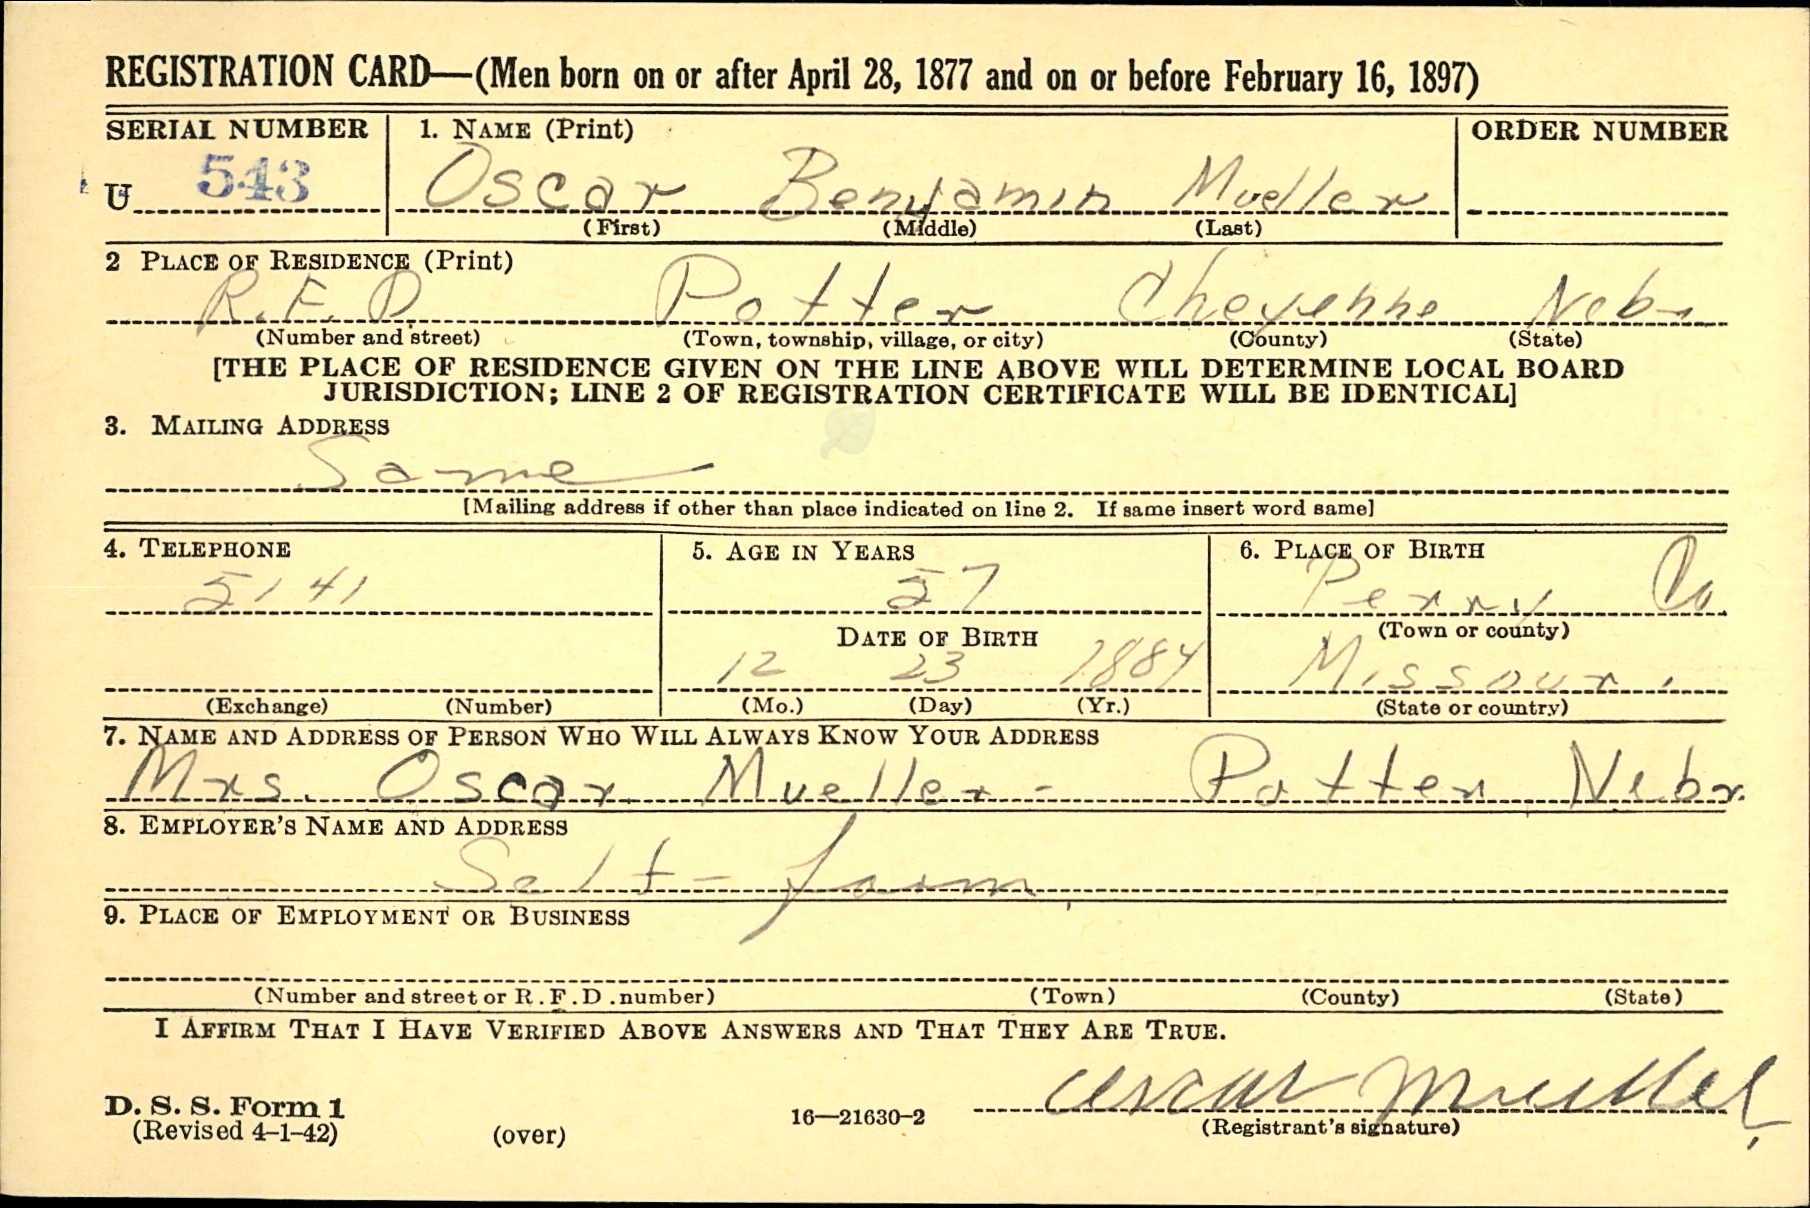 REGISTRATION CARD—(Men born on or after April 28, 1877 and on or before February 16, 1897)
SERIAL NUMBER 1. NAME (Print) ORDER NUMBER
U 543 Oscar Benjamin Mueller
(First) (Middle) (Last)
2 PLACE OF RESIDENCE (Print)
R.F.D. Potter Cheyenne Nebr
(Number and street) (Town, township, village, or city) (County) (State)
[THE PLACE OF RESIDENCE GIVEN ON THE LINE ABOVE WILL DETERMINE LOCAL BOARD
JURISDICTION; LINE 2 OF REGISTRATION CERTIFICATE WILL BE IDENTICAL]
3. MAILING ADDRESS
Same
[Mailing address if other than place indicated on line 2. If same insert word same]
4. TELEPHONE 5. AGE IN YEARS 6. PLACE OF BIRTH
5141 57 Perry Co.
(Town or county)
DATE OF BIRTH
12 23 1884 Missouri
(Exchange) (Number) (Mo.) (Day) (Yr.) (State or country)
7. NAME AND ADDRESS OF PERSON WHO WILL ALWAYS KNOW YOUR ADDRESS
Mrs. Oscar Mueller - Potter Nebr.
8. EMPLOYER'S NAME AND ADDRESS
Self - farm
9. PLACE OF EMPLOYMENT OR BUSINESS
(Number and street or R.F.D. number) (Town) (County) (State)
I AFFIRM THAT I HAVE VERIFIED ABOVE ANSWERS AND THAT THEY ARE TRUE.
Oscar Mueller
D. S. S. Form 1
(Revised 4-1-42) (over) 16—21630-2 (Registrant's signature)